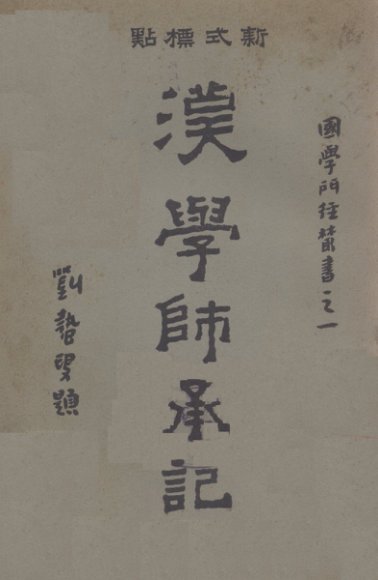 新式標點
國學門徑叢書之一
漢學師承記
劉蟄叟題